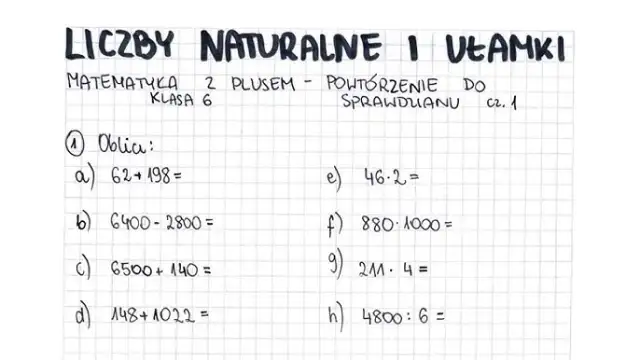 LICZBY NATURALNE I UŁAMKI
MATEMATYKA Z PLUSEM - POWTÓRZENIE DO
KLASA 6 SPRAWDZIANU cz. 1
1 Oblicz:
a) 62+198=
e) 46·2=
b) 6400-2800=
f) 880·1000=
c) 6500+140=
g) 211·4=
d) 148+1022=
h) 4800:6=